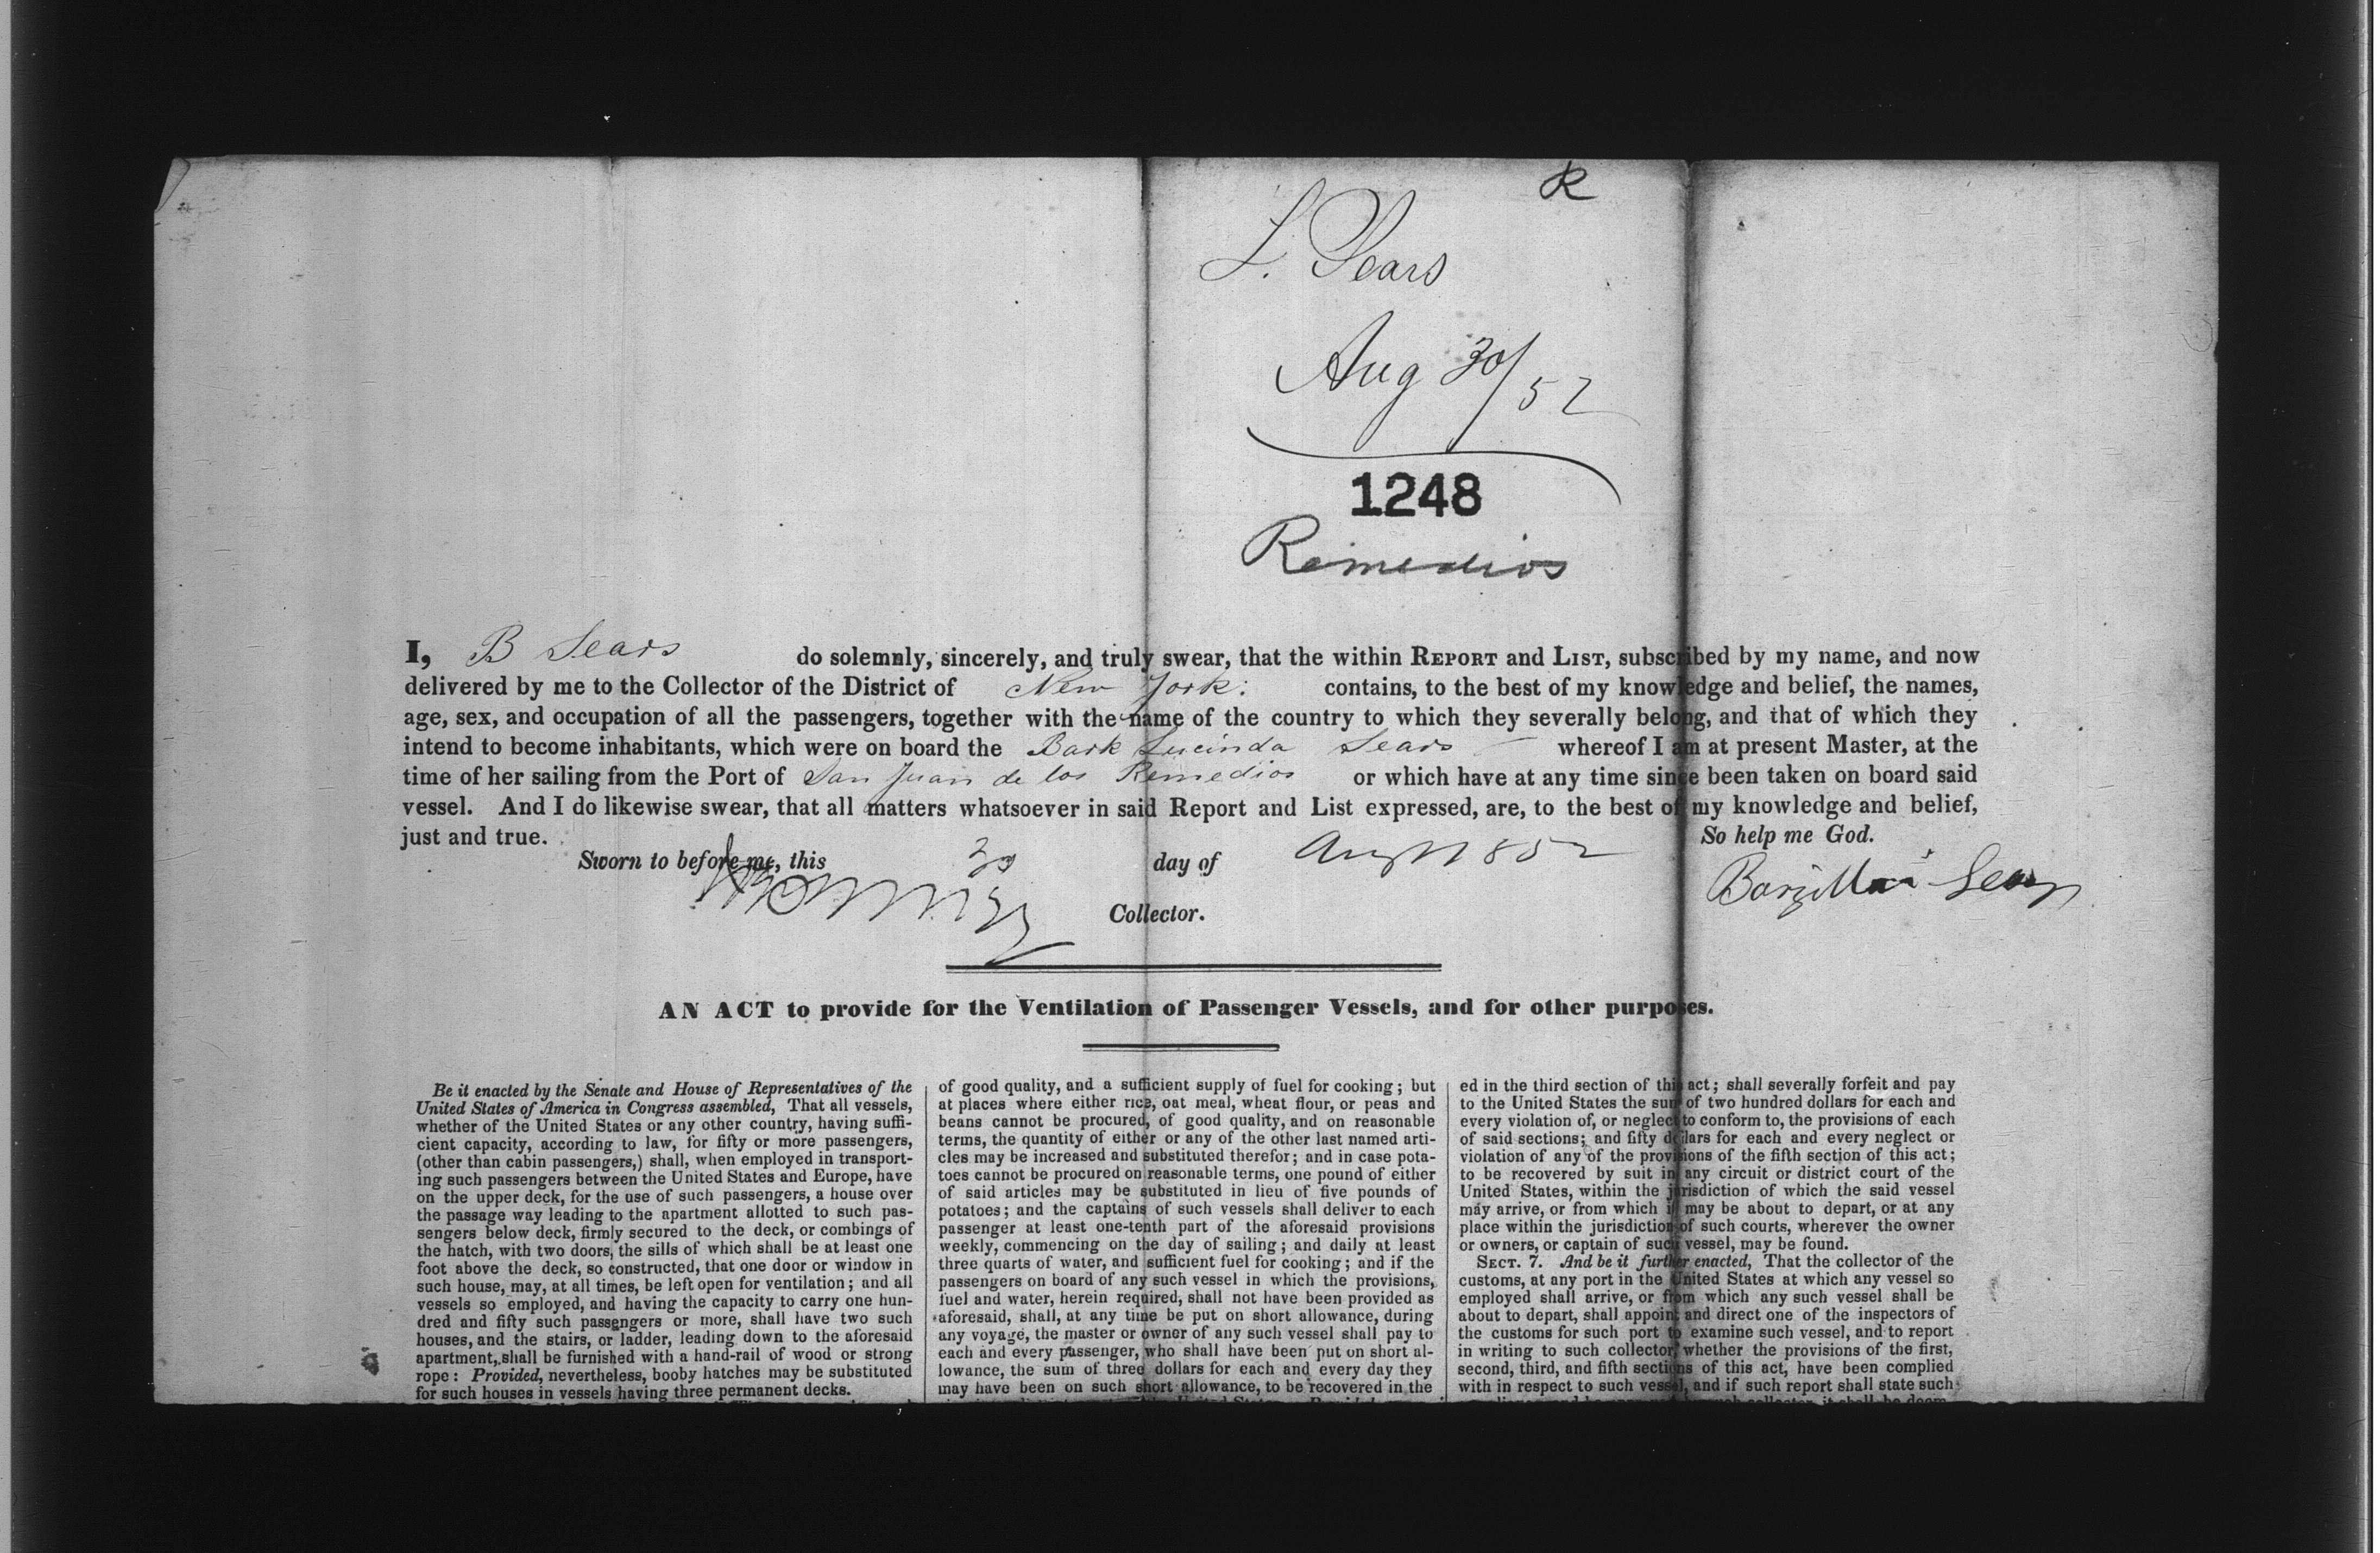 R
L. Sears
Aug 30/52
1248
Remedios
I, B Sears do solemnly, sincerely, and truly swear, that the within REPORT and LIST, subscribed by my name, and now
delivered by me to the Collector of the District of New York: contains, to the best of my knowledge and belief, the names,
age, sex, and occupation of all the passengers, together with the name of the country to which they severally belong, and that of which they
intend to become inhabitants, which were on board the Bark Lucinda Sears whereof I am at present Master, at the
time of her sailing from the Port of San Juan de los Remedios or which have at any time since been taken on board said
vessel. And I do likewise swear, that all matters whatsoever in said Report and List expressed, are, to the best of my knowledge and belief,
just and true. So help me God.
Sworn to before me, this 30 day of Augt 1852
Barzillai Sears
Collector.
AN ACT to provide for the Ventilation of Passenger Vessels, and for other purposes.
Be it enacted by the Senate and House of Representatives of the
United States of America in Congress assembled, That all vessels,
whether of the United States or any other country, having suffi-
cient capacity, according to law, for fifty or more passengers,
(other than cabin passengers,) shall, when employed in transport-
ing such passengers between the United States and Europe, have
on the upper deck, for the use of such passengers, a house over
the passage way leading to the apartment allotted to such pas-
sengers below deck, firmly secured to the deck, or combings of
the hatch, with two doors, the sills of which shall be at least one
foot above the deck, so constructed, that one door or window in
such house, may, at all times, be left open for ventilation; and all
vessels so employed, and having the capacity to carry one hun-
dred and fifty such passengers or more, shall have two such
houses, and the stairs, or ladder, leading down to the aforesaid
apartment, shall be furnished with a hand-rail of wood or strong
rope: Provided, nevertheless, booby hatches may be substituted
for such houses in vessels having three permanent decks.
of good quality, and a sufficient supply of fuel for cooking; but
at places where either rice, oat meal, wheat flour, or peas and
beans cannot be procured, of good quality, and on reasonable
terms, the quantity of either or any of the other last named arti-
cles may be increased and substituted therefor; and in case pota-
toes cannot be procured on reasonable terms, one pound of either
of said articles may be substituted in lieu of five pounds of
potatoes; and the captains of such vessels shall deliver to each
passenger at least one-tenth part of the aforesaid provisions
weekly, commencing on the day of sailing; and daily at least
three quarts of water, and sufficient fuel for cooking; and if the
passengers on board of any such vessel in which the provisions,
fuel and water, herein required, shall not have been provided as
aforesaid, shall, at any time be put on short allowance, during
any voyage, the master or owner of any such vessel shall pay to
each and every passenger, who shall have been put on short al-
lowance, the sum of three dollars for each and every day they
may have been on such short allowance, to be recovered in the
ed in the third section of this act; shall severally forfeit and pay
to the United States the sum of two hundred dollars for each and
every violation of, or neglect to conform to, the provisions of each
of said sections; and fifty dollars for each and every neglect or
violation of any of the provisions of the fifth section of this act;
to be recovered by suit in any circuit or district court of the
United States, within the jurisdiction of which the said vessel
may arrive, or from which it may be about to depart, or at any
place within the jurisdiction of such courts, wherever the owner
or owners, or captain of such vessel, may be found.
SECT. 7. And be it further enacted, That the collector of the
customs, at any port in the United States at which any vessel so
employed shall arrive, or from which any such vessel shall be
about to depart, shall appoint and direct one of the inspectors of
the customs for such port to examine such vessel, and to report
in writing to such collector, whether the provisions of the first,
second, third, and fifth sections of this act, have been complied
with in respect to such vessel, and if such report shall state such